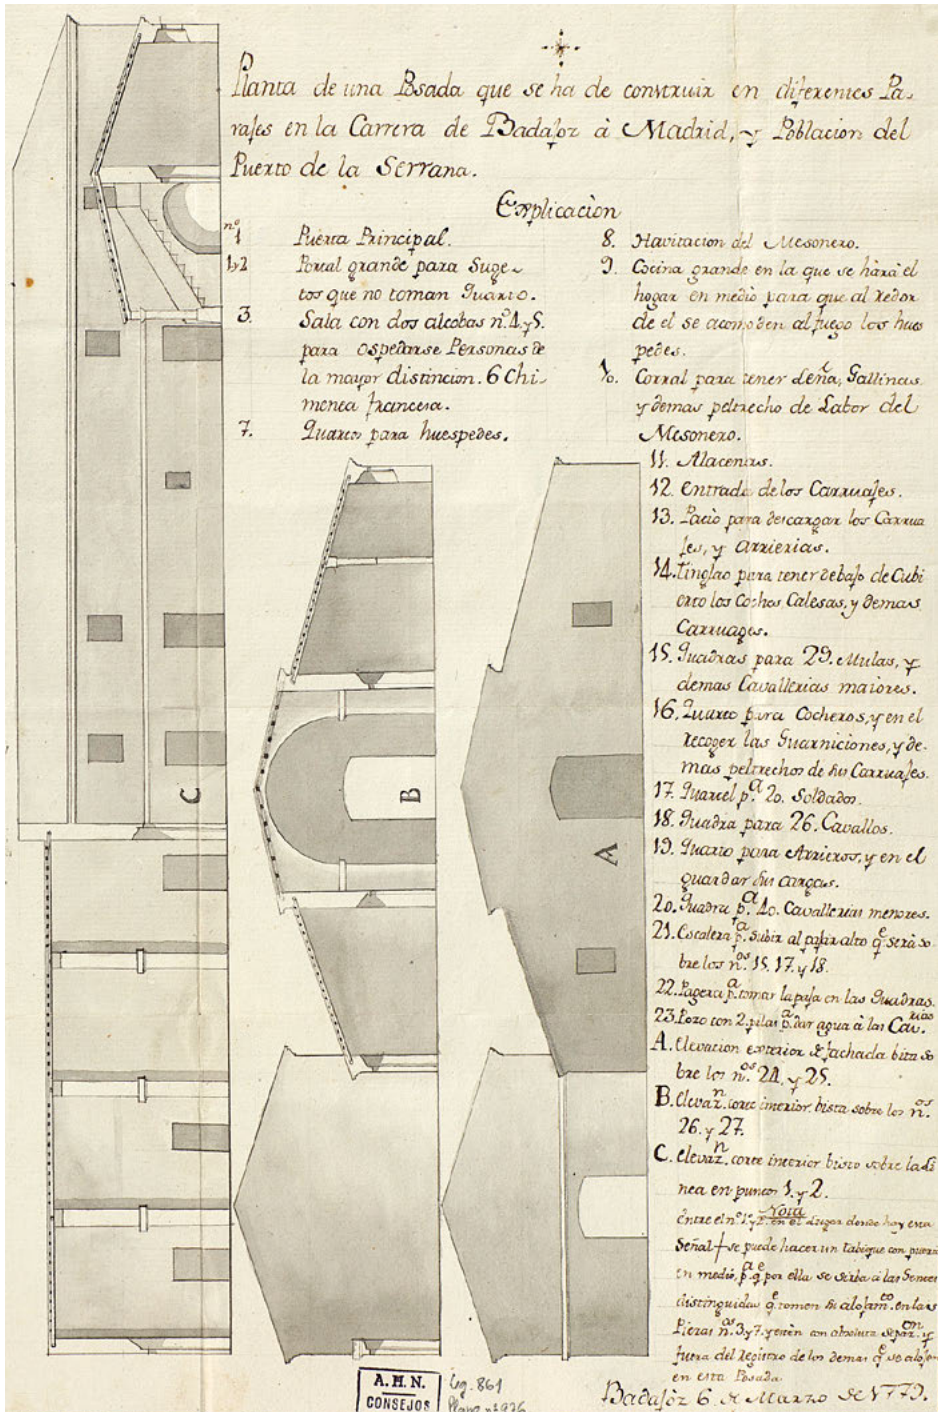 Planta de una Posada que se ha de construir en diferentes Pa-
rajes en la Carrera de Badajoz à Madrid, y Poblacion del
Puerto de la Serrana.
Explicaciòn
nº
1 Puerta Principal.
1y2 Portal grande para Suge-
tos que no toman Quarto.
3. Sala con dos alcobas nº 4. y 5.
para ospedarse Personas de
la mayor distincion. 6 Chi-
menea francesa.
7. Quartos para huespedes.
8. Havitacion del Mesonero.
9. Cocina grande en la que se harà el
hogar en medio para que al redor
de el se acomoden al fuego los hues
pedes.
10. Corral para tener Leña, Gallinas
y demas peltrecho de Labor del
Mesonero.
11. Alacenas.
12. Entrada de los Carruajes.
13. Pacio para descargar los Carrua
jes, y Arrierias.
14. Tinglao para tener debajo de Cubi
erto los Coches, Calesas, y demas
Carruages.
15. Quadras para 29. Mulas, y
demas Cavallerias maiores.
16. Quarto para Cocheros, y en el
recoger las Guarniciones, y de-
mas peltrechos de sus Carruajes.
17. Quartel p.ª 20. Soldados.
18. Quadra para 26. Cavallos.
19. Quarto para Arrieros, y en el
guardar sus cargas.
20. Quadra p.ª 40. Cavallerias menores.
21. Escalera p.ª subir al pajar alto q.e serà so
bre los n.os 15. 17. y 18.
22. Pagera p.ª tomar la paja en las Quadras.
23. Pozo con 2. pilas p.ª dar agua à las Cav.rias
A. Elevacion exterior de fachada bista so
bre los n.os 24. y 25.
B. Elevaz.n corte interior bista sobre los n.os
26. y 27.
C. Elevaz.n corte interior bisto sobre la Li
nea en puntos 1. y 2.
Nota
Entre el nº 1. y 2. en el Lugar donde hay esta
Señal + se puede hacer un tabique con puerta
en medio, p.ª q.e por ella se sirba a las Gentes
distinguidas q.e tomen su alojam.to en las
Piezas n.os 3. y 7. y estèn con absoluta separ.on y
fuera del registro de los demas q.e se alojen
en esta Posada.
Badajòz 6. de Marzo de 1779.
C
B
A
A. H. N.
CONSEJOS
Leg. 861
Plano nº 936